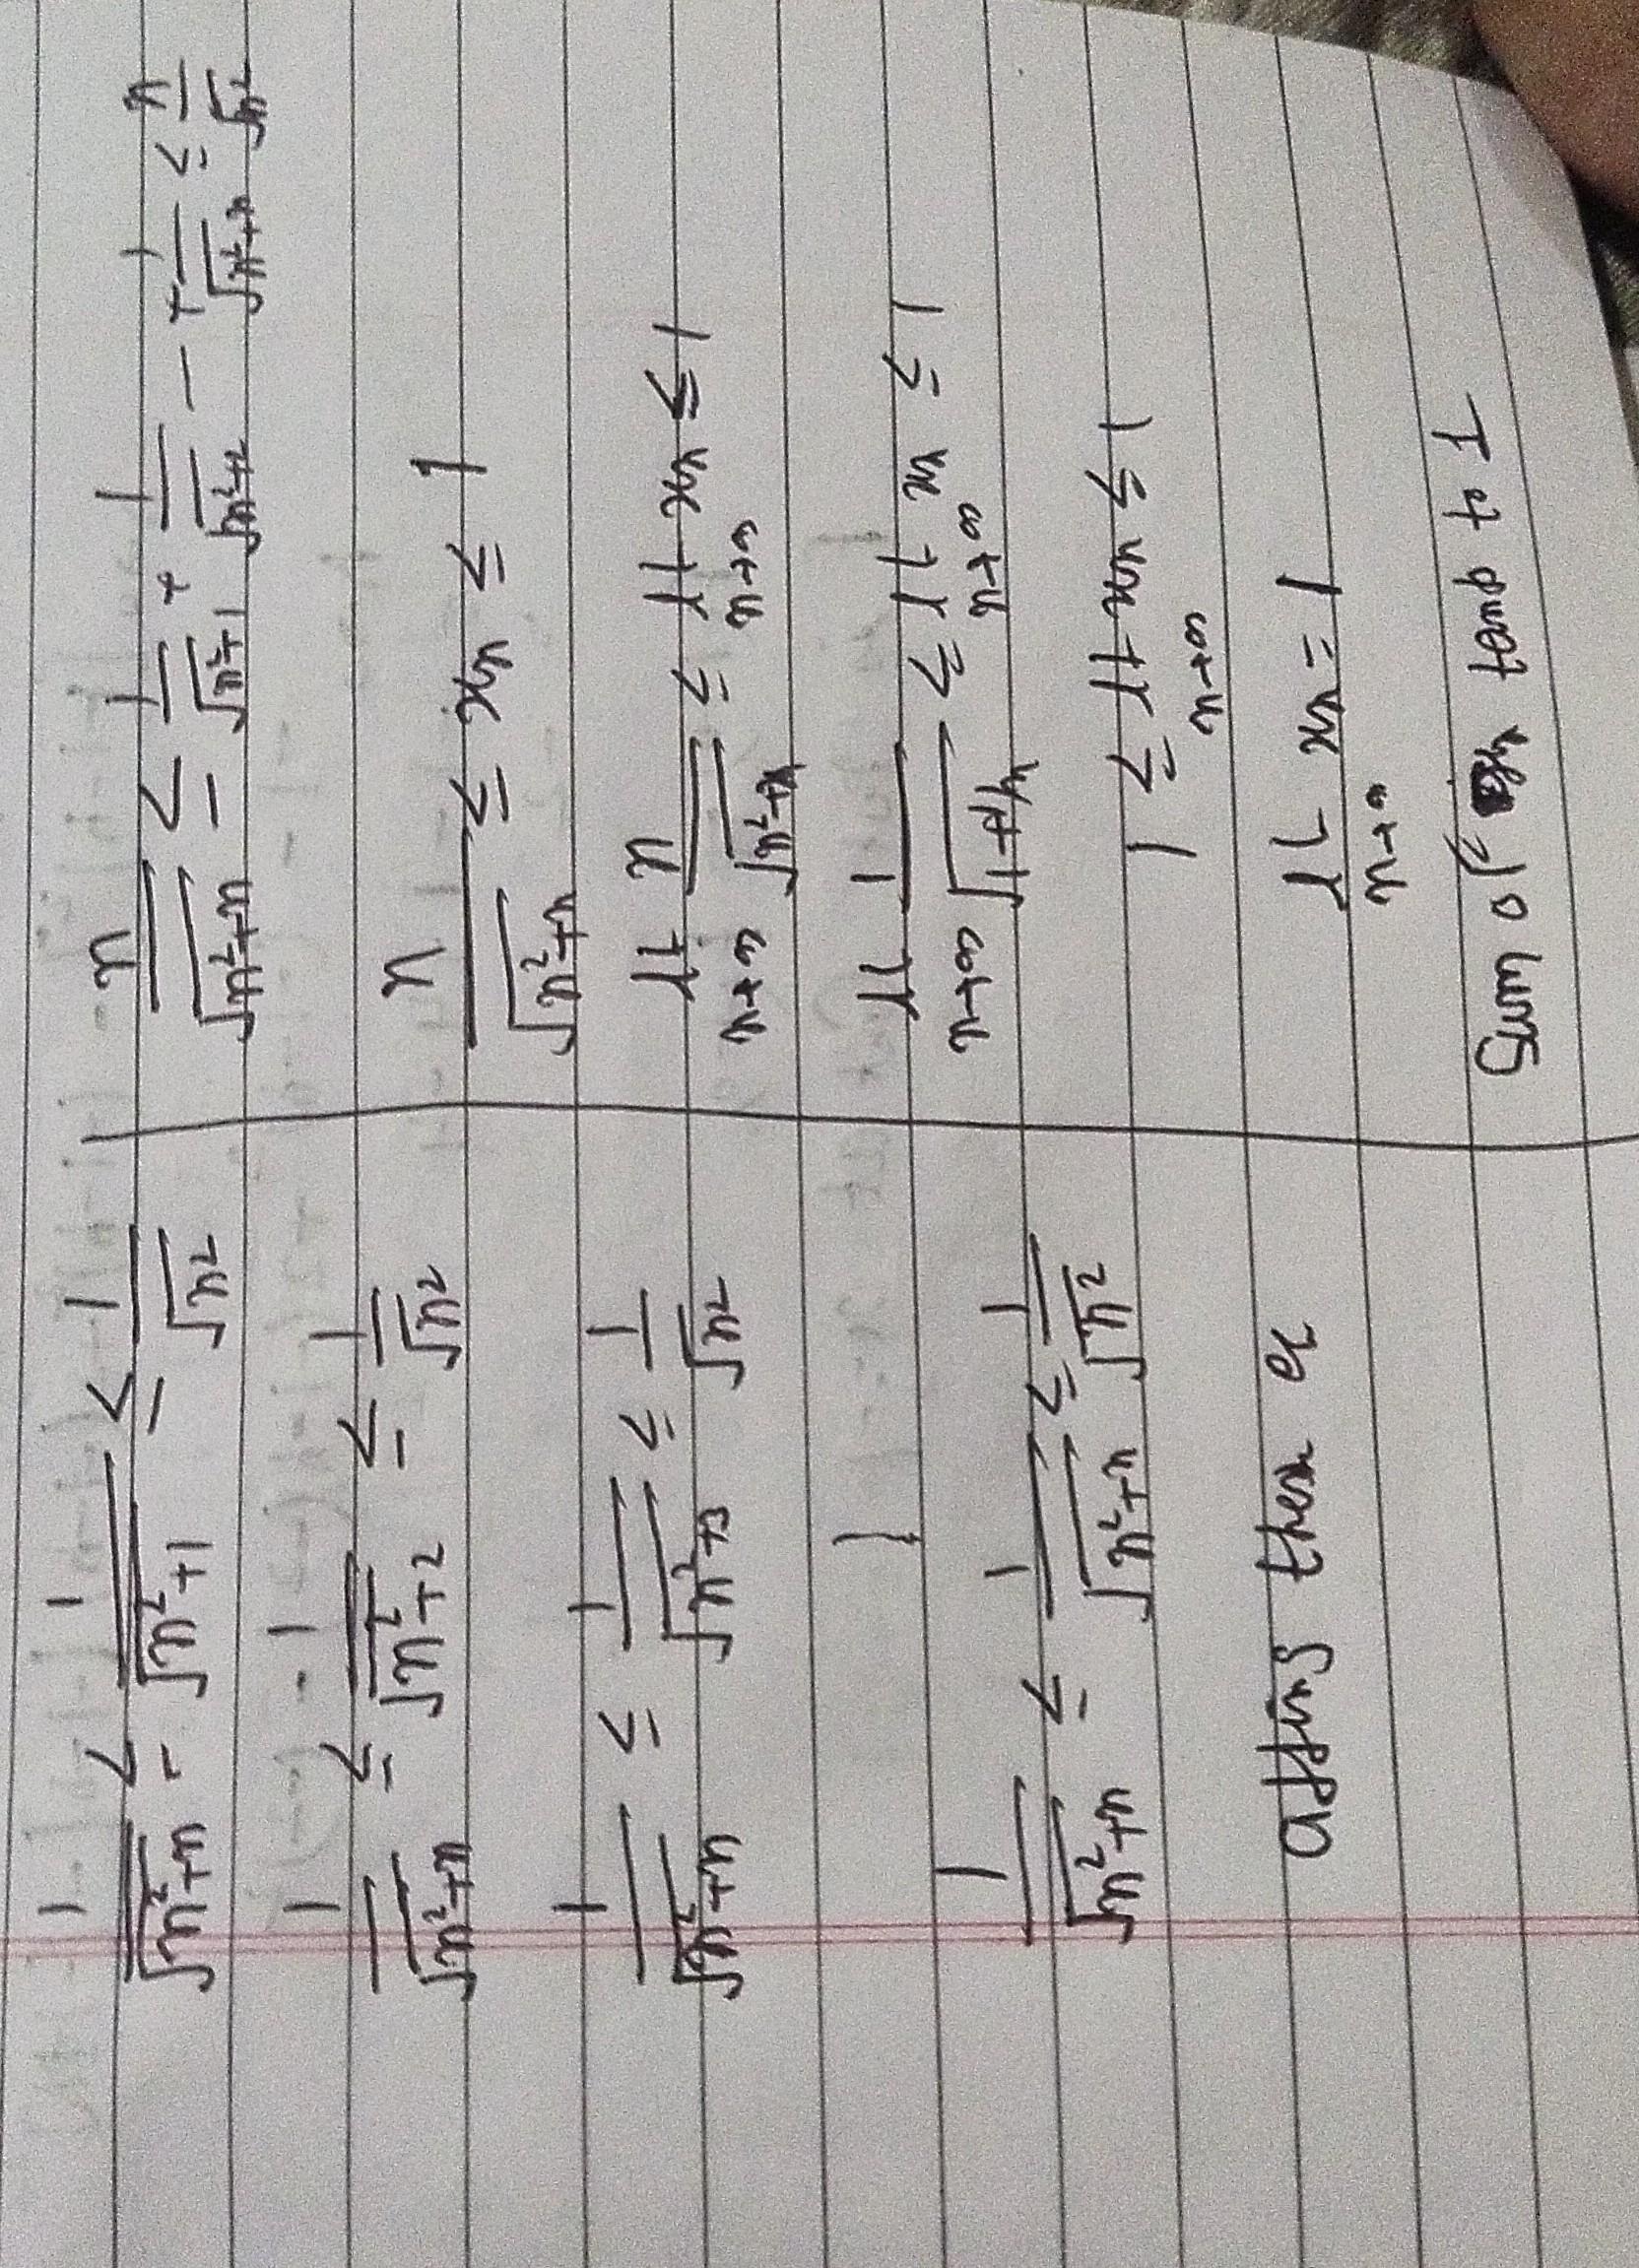 1/√(n²+n) ≤ 1/√(n²+1) ≤ 1/√n²
1/√(n²+n) ≤ 1/√(n²+2) ≤ 1/√n²
1/√(n²+n) ≤ 1/√(n²+3) ≤ 1/√n²
1/√(n²+n) ≤ 1/√(n²+n) ≤ 1/√n²
adding them
n/√(n²+n) ≤ 1/√(n²+1) + 1/√(n²+2) — + 1/√(n²+n) ≤ n/√n²
n/√(n²+n) ≤ xn ≤ 1
lt n→∞ n/√(n²+n) ≤ lt n→∞ xn ≤ 1
lt n→∞ 1/√(1+1/n) ≤ lt n→∞ xn ≤ 1
1 ≤ lt n→∞ xn ≤ 1
lt n→∞ xn = 1
Sum of tend to 1